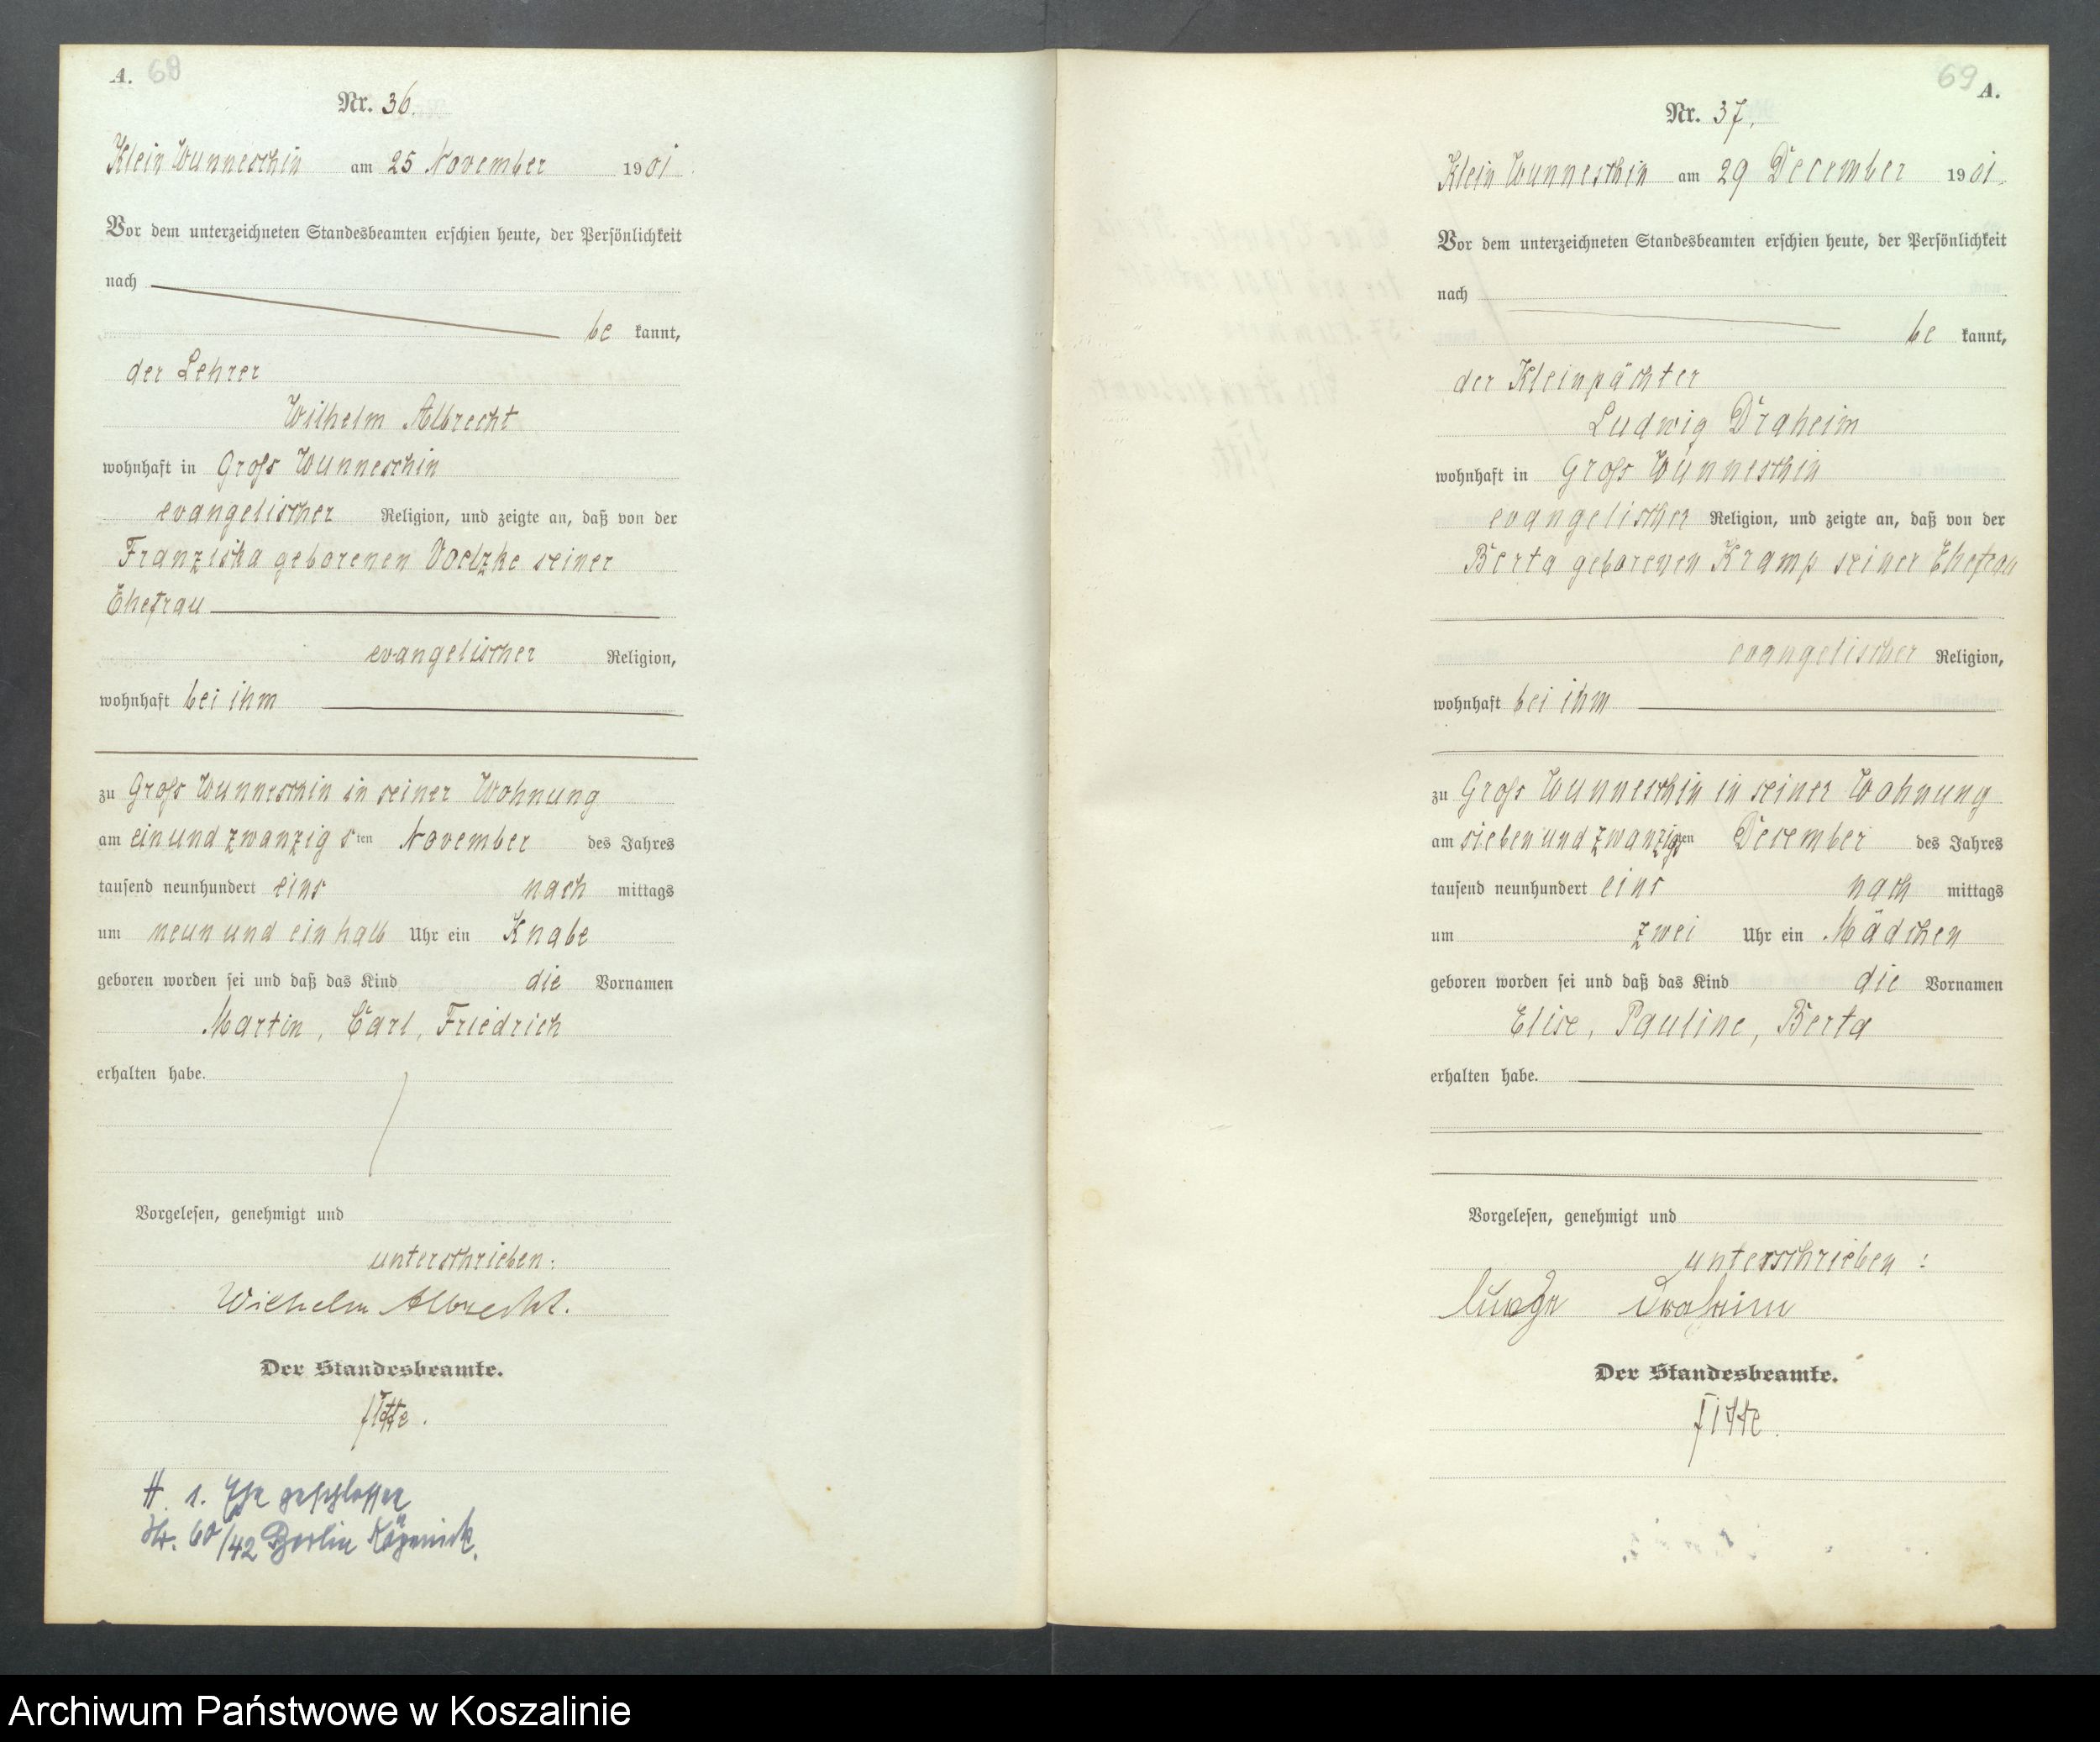 A. 68
Nr. 36.
Klein Wunneschin am 25 November 1901
Vor dem unterzeichneten Standesbeamten erschien heute, der Persönlichkeit
nach
be kannt,
der Lehrer
Wilhelm Albrecht
wohnhaft in Groß Wunneschin
evangelischer Religion, und zeigte an, daß von der
Franziska geborenen Voelzke seiner
Ehefrau
evangelischer Religion,
wohnhaft bei ihm
zu Groß Wunneschin in seiner Wohnung
am einundzwanzigsten November des Jahres
tausend neunhundert eins nach mittags
um neun und einhalb Uhr ein Knabe
geboren worden sei und daß das Kind die Vornamen
Martin, Carl, Friedrich
erhalten habe.
Vorgelesen, genehmigt und
unterschrieben:
Wilhelm Albrecht.
Der Standesbeamte.
Fitte.
H. 1. Ehe geschlossen
Nr. 60/42 Berlin Köpenick.
69 A.
Nr. 37.
Klein Wunneschin am 29 December 1901.
Vor dem unterzeichneten Standesbeamten erschien heute, der Persönlichkeit
nach
be kannt,
der Kleinpächter
Ludwig Draheim
wohnhaft in Groß Wunneschin
evangelischer Religion, und zeigte an, daß von der
Berta geborenen Kramp seiner Ehefrau
evangelischer Religion,
wohnhaft bei ihm
zu Groß Wunneschin in seiner Wohnung
am siebenundzwanzigsten December des Jahres
tausend neunhundert eins nach mittags
um zwei Uhr ein Mädchen
geboren worden sei und daß das Kind die Vornamen
Elise, Pauline, Berta
erhalten habe.
Vorgelesen, genehmigt und
unterschrieben:
Draheim
Der Standesbeamte.
Fitte.
Archiwum Państwowe w Koszalinie